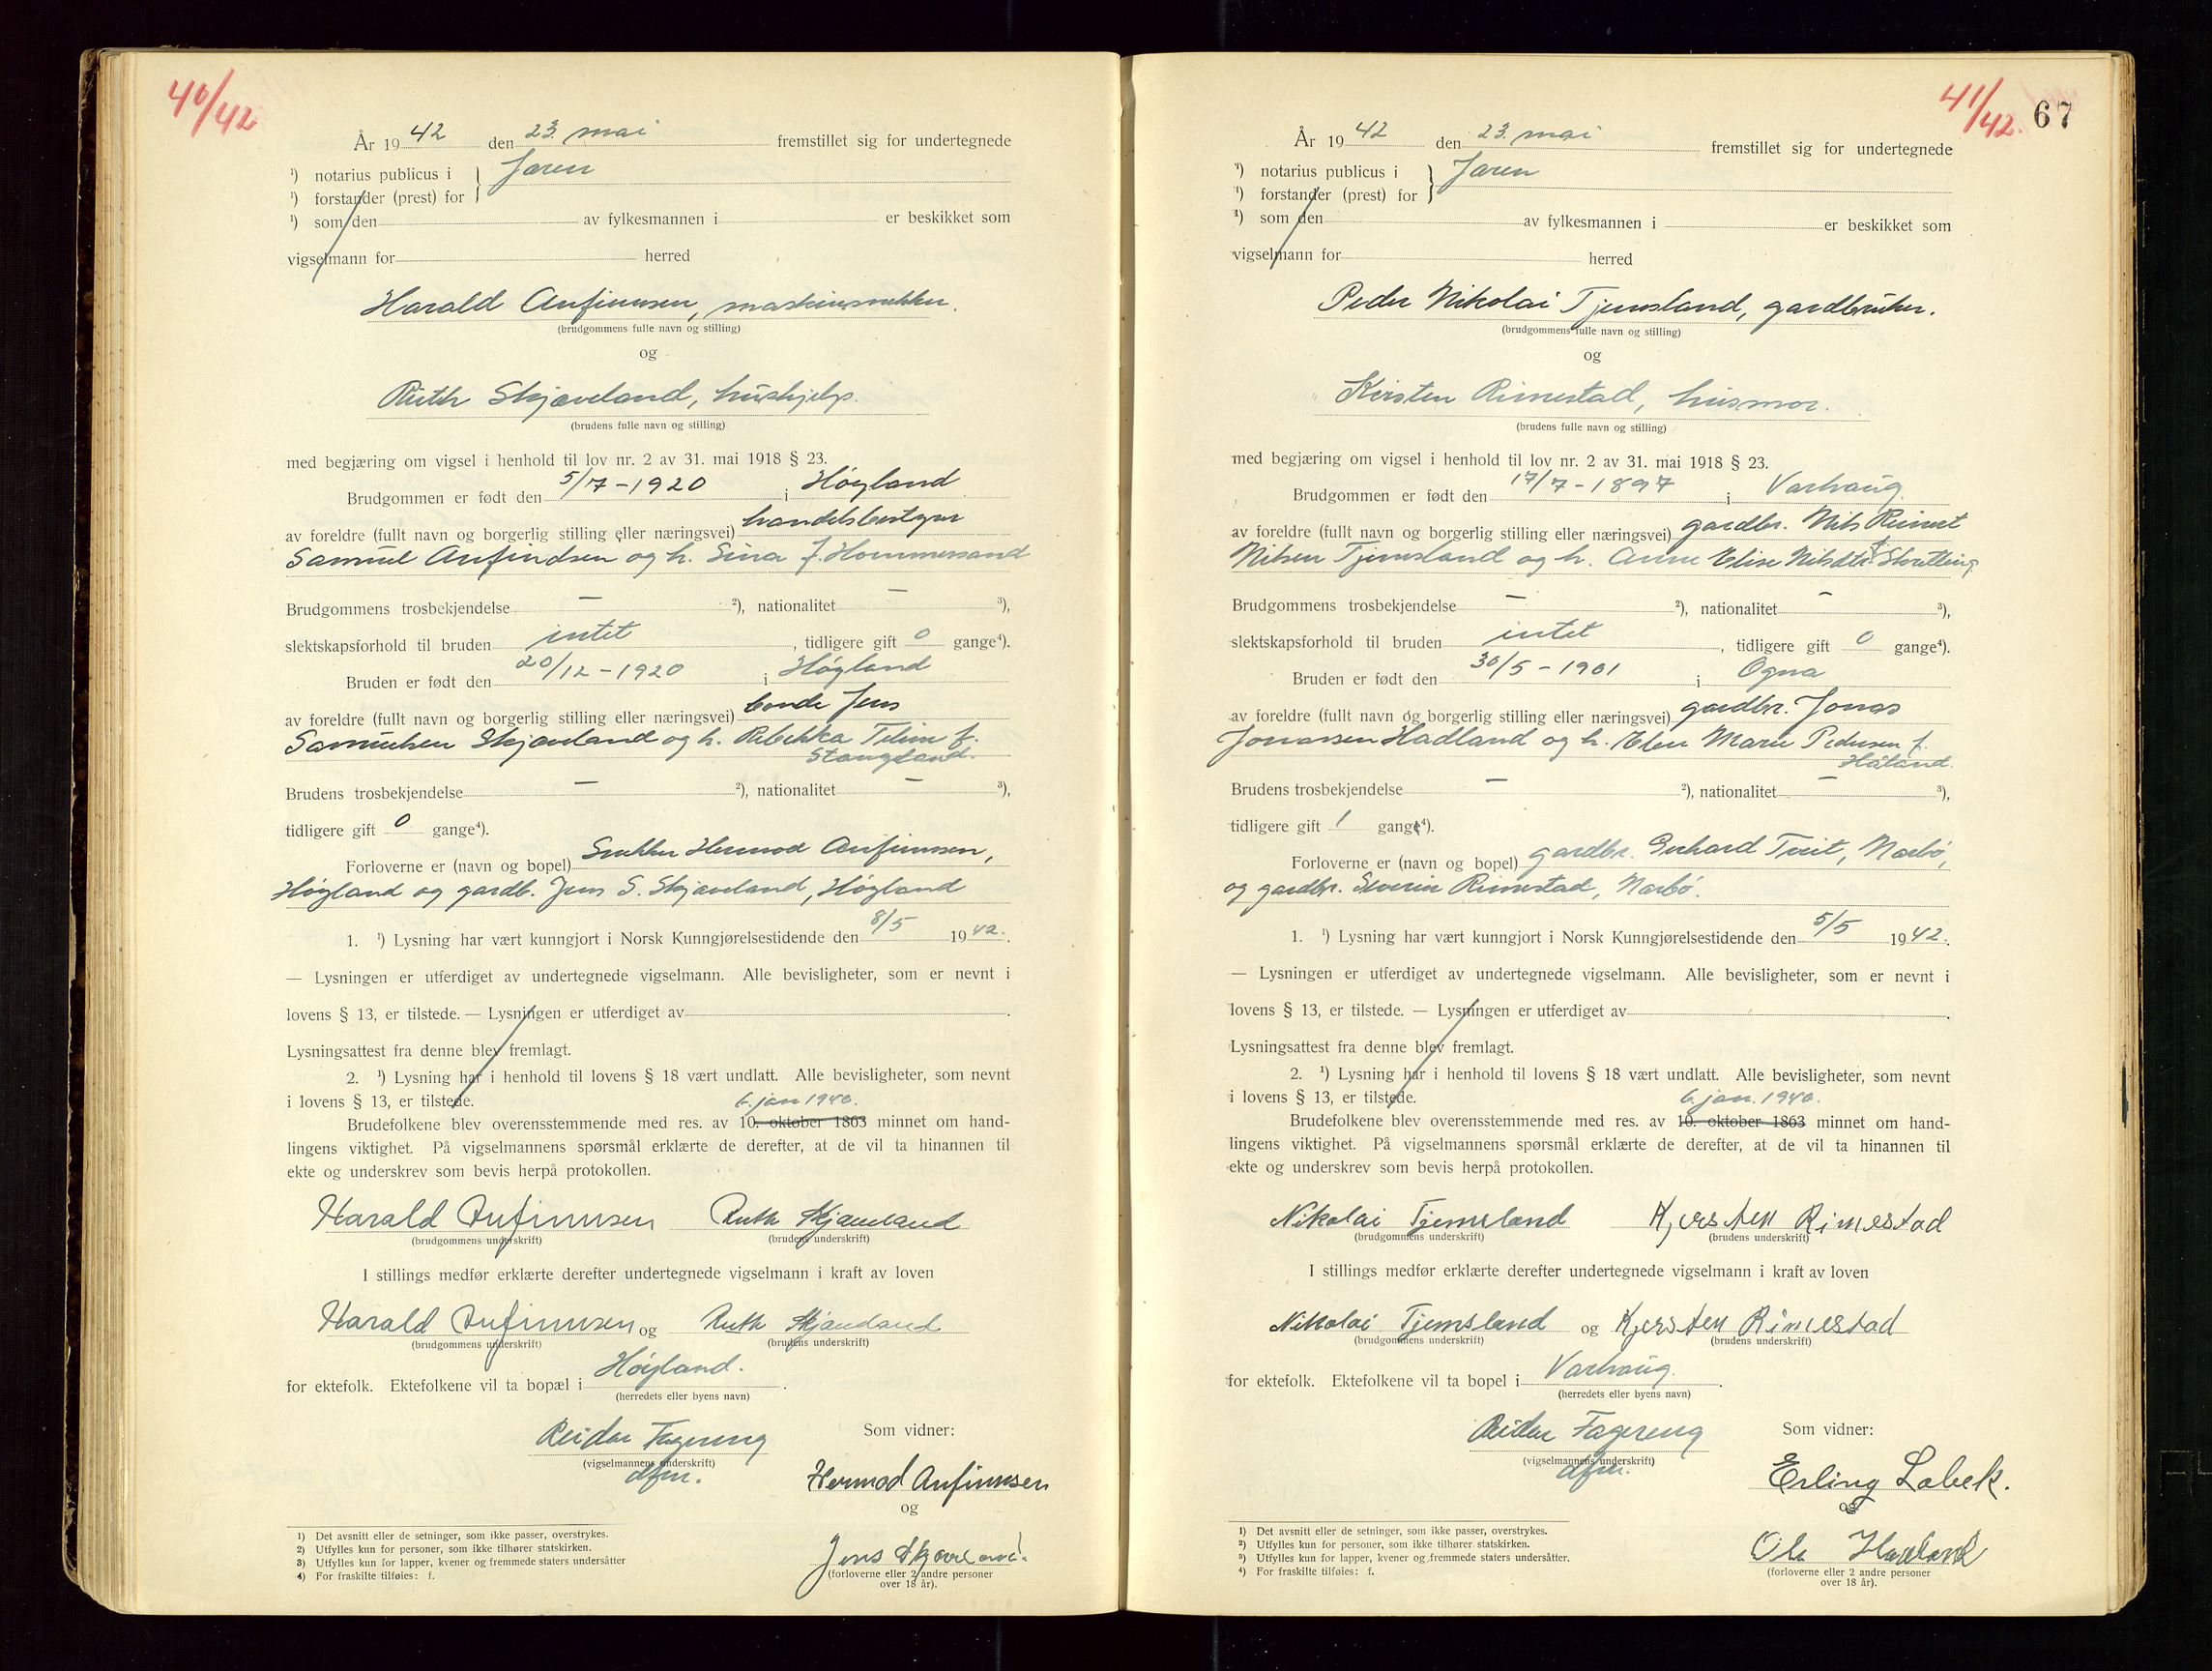 40/42
År 1942 den 23. mai fremstillet sig for undertegnede
¹) notarius publicus i } Jæren
¹) forstander (prest) for
¹) som den av fylkesmannen i er beskikket som
vigselmann for herred
Harald Anfinnsen, maskinsnekker.
(brudgommens fulle navn og stilling)
og
Ruth Skjæveland, hushjelp.
(brudens fulle navn og stilling)
med begjæring om vigsel i henhold til lov nr. 2 av 31. mai 1918 § 23.
Brudgommen er født den 5/7-1920 i Høyland
av foreldre (fullt navn og borgerlig stilling eller næringsvei) handelsbestyrer
Samuel Anfindsen og h. Sina f. Hommersand
Brudgommens trosbekjendelse — ²), nationalitet — ³),
slektskapsforhold til bruden intet, tidligere gift 0 gange⁴).
Bruden er født den 20/12-1920 i Høyland
av foreldre (fullt navn og borgerlig stilling eller næringsvei) bonde Jens
Samuelsen Skjæveland og h. Rebekka Teline f.
Stangeland.
Brudens trosbekjendelse — ²), nationalitet — ³),
tidligere gift 0 gange⁴).
Forloverne er (navn og bopel) Snekker Hermod Anfinnsen,
Høyland og gardb. Jens S. Skjæveland, Høyland
1. ¹) Lysning har vært kunngjort i Norsk Kunngjørelsestidende den 8/5 1942.
— Lysningen er utferdiget av undertegnede vigselmann. Alle bevisligheter, som er nevnt i
lovens § 13, er tilstede. — Lysningen er utferdiget av .
Lysningsattest fra denne blev fremlagt.
2. ¹) Lysning har i henhold til lovens § 18 vært undlatt. Alle bevisligheter, som nevnt
i lovens § 13, er tilstede. 6. jan 1940.
Brudefolkene blev overensstemmende med res. av 10. oktober 1863 minnet om hand-
lingens viktighet. På vigselmannens spørsmål erklærte de derefter, at de vil ta hinannen til
ekte og underskrev som bevis herpå protokollen.
Harald Anfinnsen Ruth Skjæveland
(brudgommens underskrift) (brudens underskrift)
I stillings medfør erklærte derefter undertegnede vigselmann i kraft av loven
Harald Anfinnsen og Ruth Skjæveland
(brudgommens underskrift) (brudens underskrift)
for ektefolk. Ektefolkene vil ta bopæl i Høyland.
(herredets eller byens navn)
Reidar Fagereng Som vidner:
(vigselmannens underskrift)
dfm.
Hermod Anfinnsen
og
Jens Skjæveland.
(forloverne eller 2 andre personer
over 18 år).
1) Det avsnitt eller de setninger, som ikke passer, overstrykes.
2) Utfylles kun for personer, som ikke tilhører statskirken.
3) Utfylles kun for lapper, kvener og fremmede staters undersåtter
4) For fraskilte tilføies: f.
41/42. 67
År 1942 den 23. mai fremstillet sig for undertegnede
¹) notarius publicus i } Jæren
¹) forstander (prest) for
¹) som den av fylkesmannen i er beskikket som
vigselmann for herred
Peder Nikolai Tjemsland, gardbruker.
(brudgommens fulle navn og stilling)
og
Kirsten Rimestad, husmor.
(brudens fulle navn og stilling)
med begjæring om vigsel i henhold til lov nr. 2 av 31. mai 1918 § 23.
Brudgommen er født den 17/7-1897 i Varhaug
av foreldre (fullt navn og borgerlig stilling eller næringsvei) gardbr. Nils Reinert
Nilsen Tjemsland og h. Anne Elise Nilsdtr. f. Skretting
Brudgommens trosbekjendelse — ²), nationalitet — ³),
slektskapsforhold til bruden intet, tidligere gift 0 gange⁴).
Bruden er født den 30/5-1901 i Ogna
av foreldre (fullt navn og borgerlig stilling eller næringsvei) gardbr. Jonas
Jonassen Hadland og h. Elen Marie Pedersen f.
Håland.
Brudens trosbekjendelse — ²), nationalitet — ³),
tidligere gift 1 gange⁴).
Forloverne er (navn og bopel) gardbr. Gerhard Tveit, Nærbø,
og gardbr. Severin Rimestad, Nærbø.
1. ¹) Lysning har vært kunngjort i Norsk Kunngjørelsestidende den 5/5 1942.
— Lysningen er utferdiget av undertegnede vigselmann. Alle bevisligheter, som er nevnt i
lovens § 13, er tilstede. — Lysningen er utferdiget av .
Lysningsattest fra denne blev fremlagt.
2. ¹) Lysning har i henhold til lovens § 18 vært undlatt. Alle bevisligheter, som nevnt
i lovens § 13, er tilstede. 6. jan. 1940.
Brudefolkene blev overensstemmende med res. av 10. oktober 1863 minnet om hand-
lingens viktighet. På vigselmannens spørsmål erklærte de derefter, at de vil ta hinannen til
ekte og underskrev som bevis herpå protokollen.
Nikolai Tjemsland Kjersten Rimestad
(brudgommens underskrift) (brudens underskrift)
I stillings medfør erklærte derefter undertegnede vigselmann i kraft av loven
Nikolai Tjemsland og Kjersten Rimestad
(brudgommens underskrift) (brudens underskrift)
for ektefolk. Ektefolkene vil ta bopel i Varhaug.
(herredets eller byens navn)
Reidar Fagereng Som vidner:
(vigselmannens underskrift)
dfm.
Erling Labek.
og
Ole Haaland
(forloverne eller 2 andre personer
over 18 år).
1) Det avsnitt eller de setninger, som ikke passer, overstrykes.
2) Utfylles kun for personer, som ikke tilhører statskirken.
3) Utfylles kun for lapper, kvener og fremmede staters undersåtter.
4) For fraskilte tilføies: f.